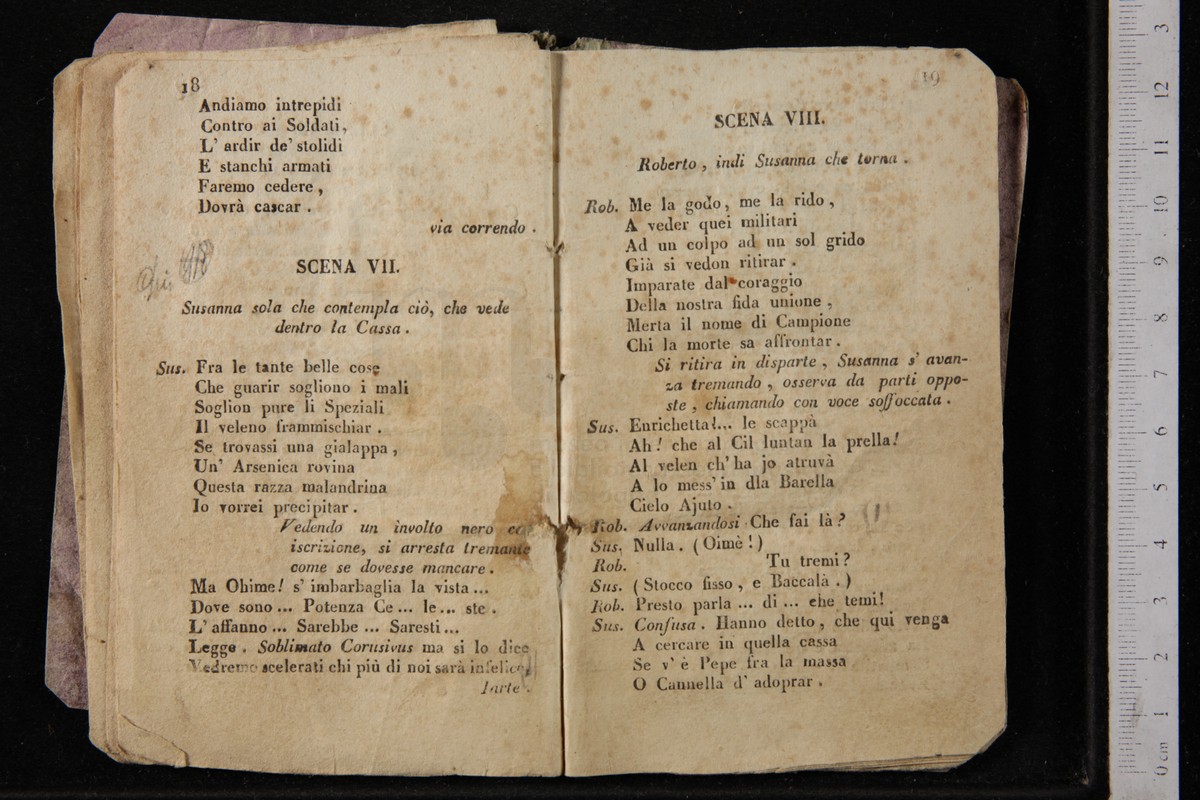 18
Andiamo intrepidi
Contro ai Soldati,
L' ardir de' stolidi
E stanchi armati
Faremo cedere,
Dovrà cascar.
via correndo.
SCENA VII.
Susanna sola che contempla ciò, che vede
dentro la Cassa.
Sus. Fra le tante belle cose
Che guarir sogliono i mali
Soglion pure li Speziali
Il veleno frammischiar.
Se trovassi una gialappa,
Un' Arsenica rovina
Questa razza malandrina
Io vorrei precipitar.
Vedendo un involto nero
iscrizione, si arresta tremante
come se dovesse mancare.
Ma Ohime! s' imbarbaglia la vista...
Dove sono... Potenza Ce... le... ste.
L' affanno... Sarebbe... Saresti...
Legge. Soblimato Corusivus ma si lo dice
Vedremo scelerati chi più di noi sarà infelice,
Parte.
19
SCENA VIII.
Roberto, indi Susanna che torna.
Rob. Me la godo, me la rido,
A veder quei militari
Ad un colpo ad un sol grido
Già si vedon ritirar.
Imparate dal coraggio
Della nostra fida unione,
Merta il nome di Campione
Chi la morte sa affrontar.
Si ritira in disparte, Susanna s' avan-
za tremando, osserva da parti oppo-
ste, chiamando con voce soffoccata.
Sus. Enrichetta!... le scappà
Ah! che al Cil luntan la prella!
Al velen ch' ha jo atruvà
A lo mess' in dla Barella
Cielo Ajuto.
Rob. Avvanzandosi Che fai là?
Sus. Nulla. (Oimè!)
Rob. Tu tremi?
Sus. (Stocco fisso, e Baccalà.)
Rob. Presto parla... di... che temi!
Sus. Confusa. Hanno detto, che qui venga
A cercare in quella cassa
Se v' è Pepe fra la massa
O Cannella d' adoprar.